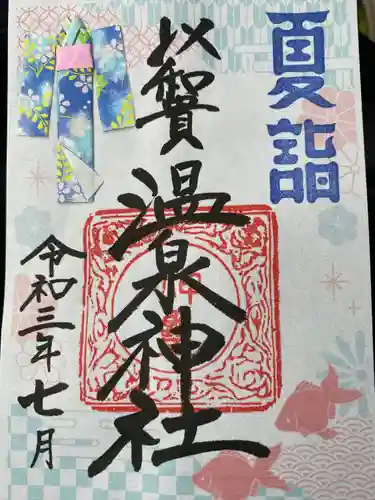 夏詣
以賀
温泉神社
令和三年七月